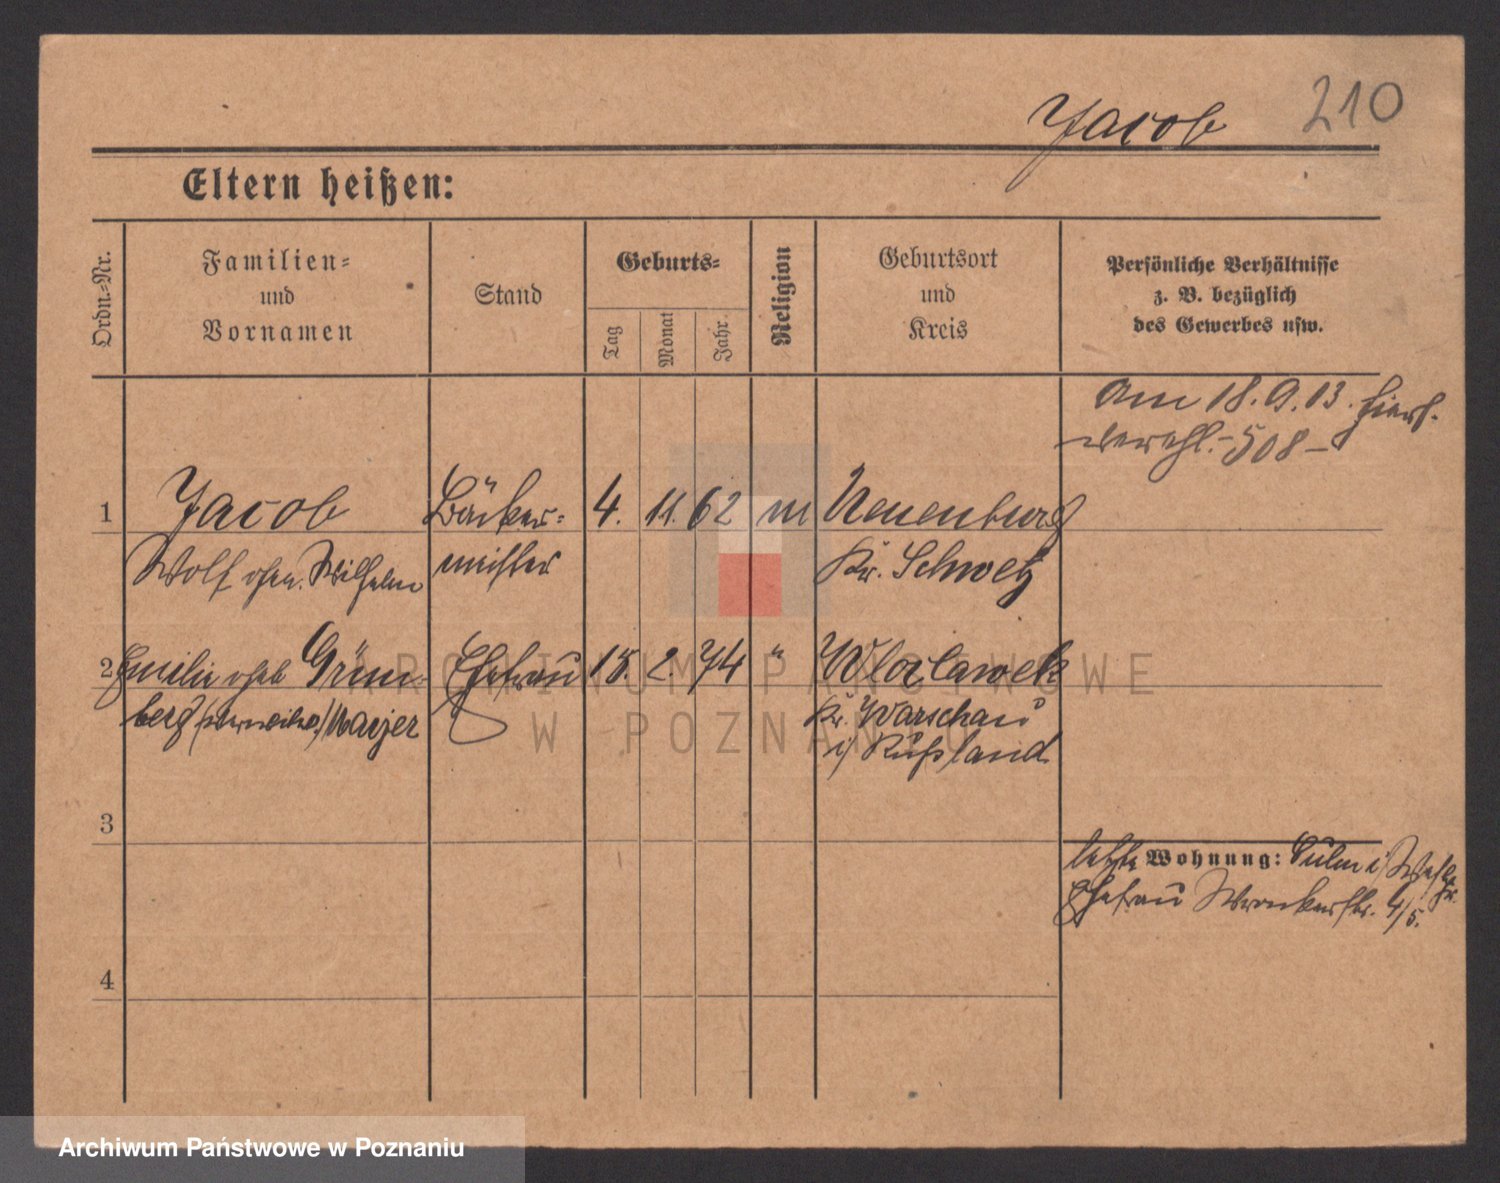 Jacob 210
Eltern heißen:
Ordn.-Nr.
Familien-
und
Vornamen
Stand
Geburts-
Tag
Monat
Jahr.
Religion
Geburtsort
und
Kreis
Persönliche Verhältnisse
z. B. bezüglich
des Gewerbes usw.
am 18.9.13. hiers.
verehl. - 508 -
1 Jacob Bäcker- 4. 11. 62 m Neuenburg
Wolf gen. Wilhelm meister Kr. Schwetz
2 Emilie geb. Grün- Ehefrau 18. 2. 74 " Wloclawek
berg /verwitw./ Mayer Kr. Warschau
i/ Rußland
3
letzte Wohnung: Culm i/
Ehefrau Wronkerstr. 4/5.
4
ARCHIWUM PAŃSTWOWE
W POZNANIU
Archiwum Państwowe w Poznaniu